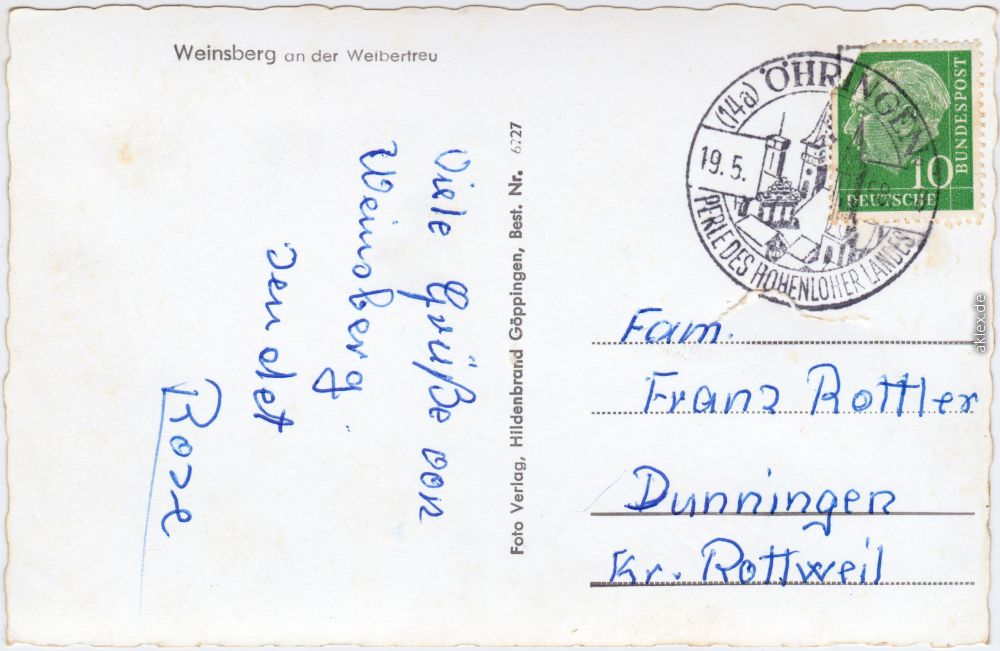 Weinsberg an der Weibertreu
Viele Grüße von
Weinsberg
sendet
Rose
Foto Verlag, Hildenbrand Göppingen, Best. Nr. 6227
(14a) ÖHRINGEN
19.5.
PERLE DES HOHENLOHER LANDES
10
DEUTSCHE
BUNDESPOST
Fam.
Franz Rottler
Dunningen
Kr. Rottweil
aklex.de